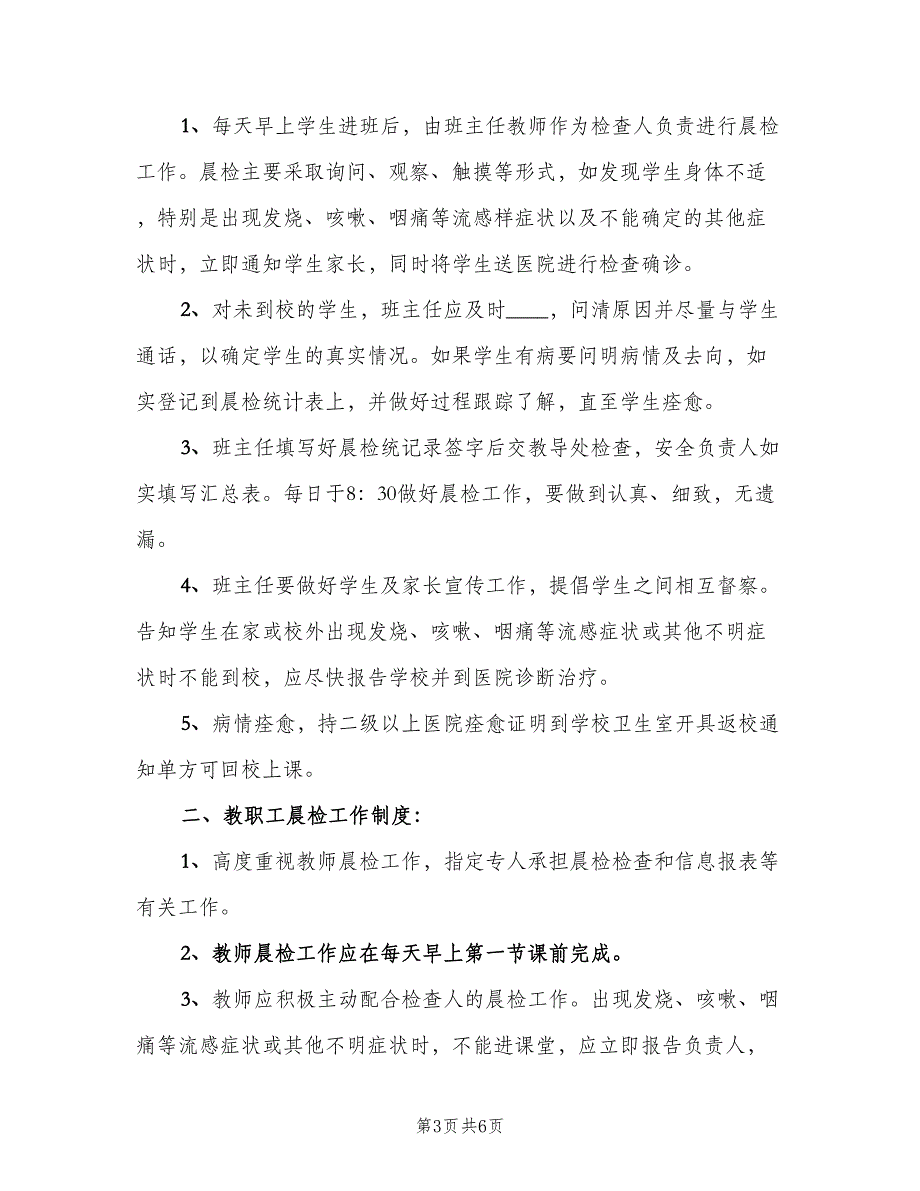 1、每天早上学生进班后，由班主任教师作为检查人负责进行晨检
工作。晨检主要采取询问、观察、触摸等形式，如发现学生身体不适
，特别是出现发烧、咳嗽、咽痛等流感样症状以及不能确定的其他症
状时，立即通知学生家长，同时将学生送医院进行检查确诊。
2、对未到校的学生，班主任应及时____，问清原因并尽量与学生
通话，以确定学生的真实情况。如果学生有病要问明病情及去向，如
实登记到晨检统计表上，并做好过程跟踪了解，直至学生痊愈。
3、班主任填写好晨检统记录签字后交教导处检查，安全负责人如
实填写汇总表。每日于8：30做好晨检工作，要做到认真、细致，无遗
漏。
4、班主任要做好学生及家长宣传工作，提倡学生之间相互督察。
告知学生在家或校外出现发烧、咳嗽、咽痛等流感症状或其他不明症
状时不能到校，应尽快报告学校并到医院诊断治疗。
5、病情痊愈，持二级以上医院痊愈证明到学校卫生室开具返校通
知单方可回校上课。
二、教职工晨检工作制度：
1、高度重视教师晨检工作，指定专人承担晨检检查和信息报表等
有关工作。
2、教师晨检工作应在每天早上第一节课前完成。
3、教师应积极主动配合检查人的晨检工作。出现发烧、咳嗽、咽
痛等流感症状或其他不明症状时，不能进课堂，应立即报告负责人，
第3页共6页